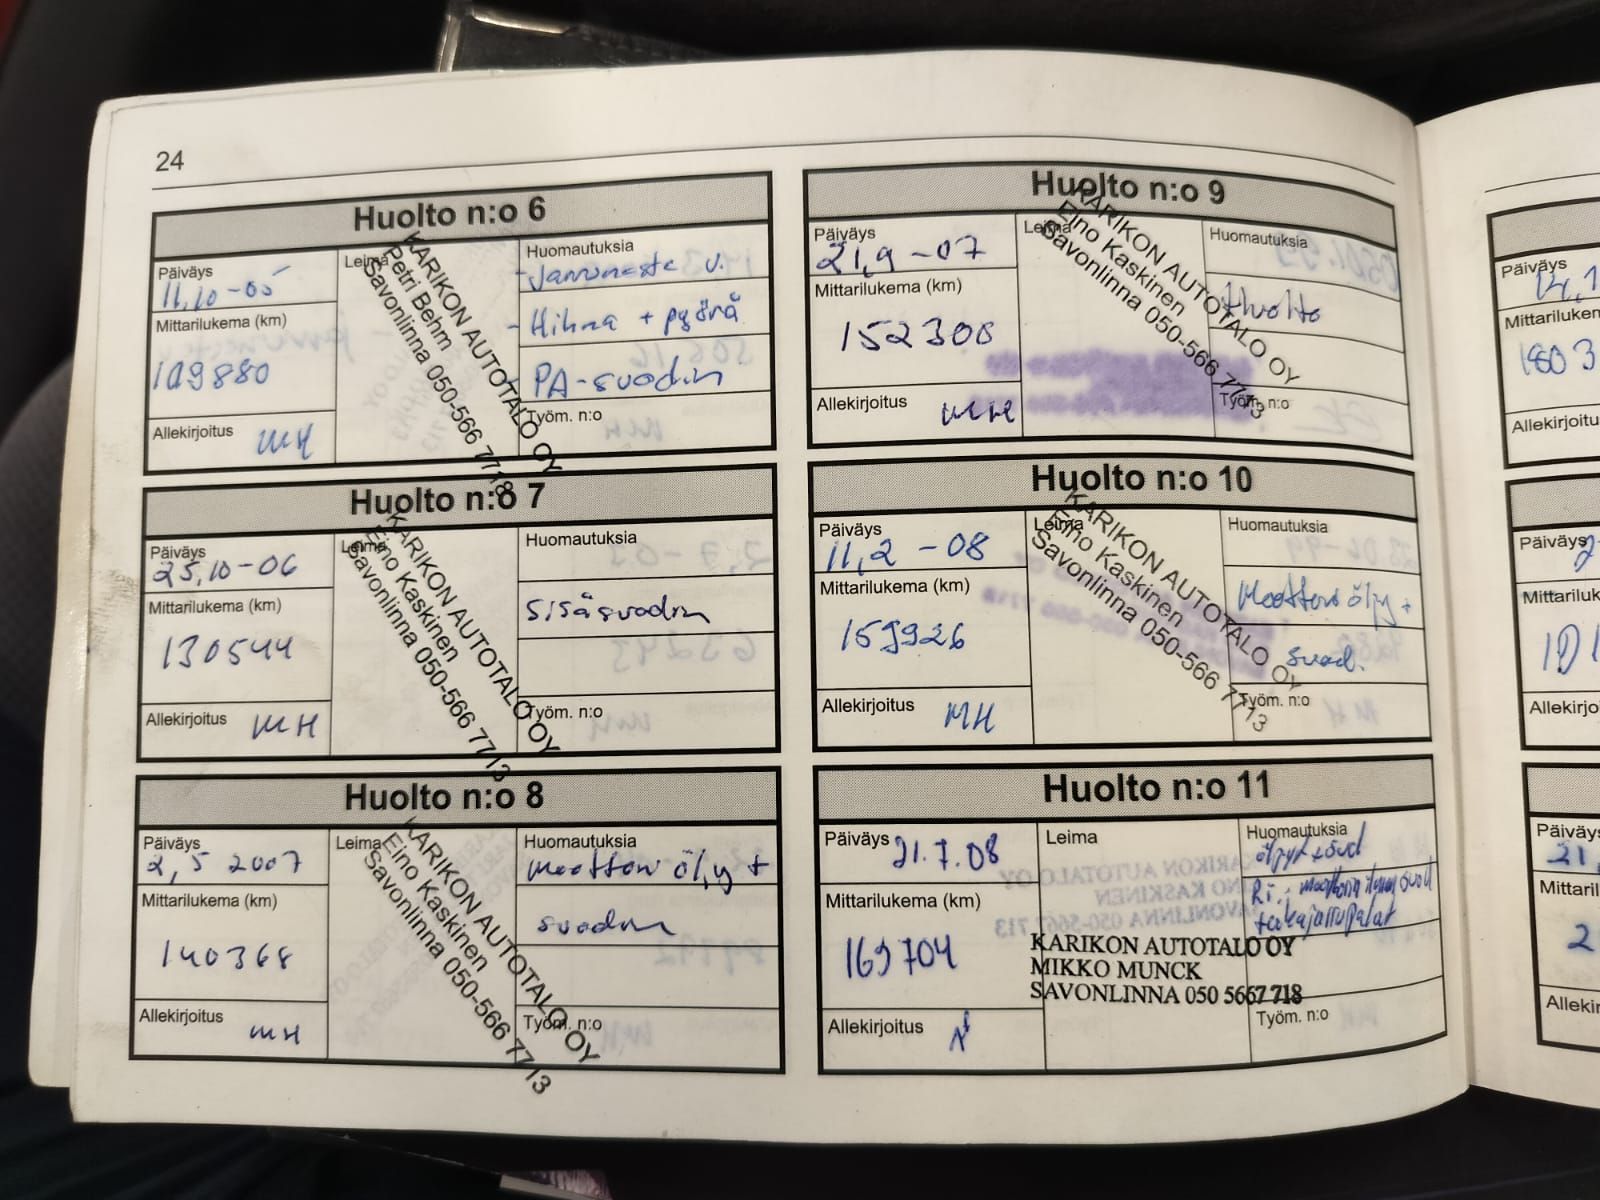 24
Huolto n:o 6
Päiväys
11,10-05
Mittarilukema (km)
109880
Allekirjoitus MH
Leima
KARIKON AUTOTALO OY
Petri Behm
Savonlinna 050-566 7718
Huomautuksia
- Jarruneste v.
- Hihna + pyörä
PA-suodin
Työm. n:o
Huolto n:o 7
Päiväys
25,10-06
Mittarilukema (km)
130544
Allekirjoitus MH
Leima
KARIKON AUTOTALO OY
Eino Kaskinen
Savonlinna 050-566 7713
Huomautuksia
Sisäsuodin
Työm. n:o
Huolto n:o 8
Päiväys
2,5 2007
Mittarilukema (km)
140368
Allekirjoitus MH
Leima
KARIKON AUTOTALO OY
Eino Kaskinen
Savonlinna 050-566 7713
Huomautuksia
Moottori öljy +
suodin
Työm. n:o
Huolto n:o 9
Päiväys
21,9-07
Mittarilukema (km)
152308
Allekirjoitus MH
Leima
KARIKON AUTOTALO OY
Eino Kaskinen
Savonlinna 050-566 7713
Huomautuksia
Huolto
Työm. n:o
Huolto n:o 10
Päiväys
11,2-08
Mittarilukema (km)
159926
Allekirjoitus MH
Leima
KARIKON AUTOTALO OY
Eino Kaskinen
Savonlinna 050-566 7713
Huomautuksia
Moottori öljy +
suod.
Työm. n:o
Huolto n:o 11
Päiväys 21.7.08
Mittarilukema (km)
169704
Allekirjoitus
Leima
KARIKON AUTOTALO OY
MIKKO MUNCK
SAVONLINNA 050 5667 718
Huomautuksia
Työm. n:o
Päiväys
Mittarilukem
1803
Allekirjoitu
Päiväys
Mittariluk
Allekirjo
Päiväys
21,
Mittaril
2
Allekir